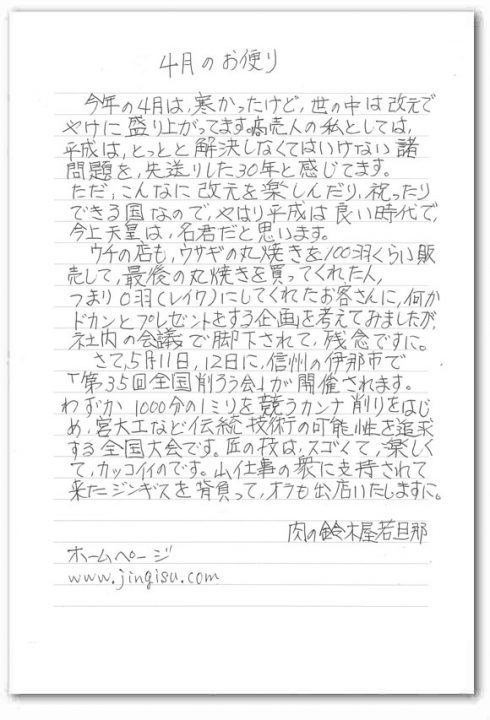 4月のお便り
今年の4月は、寒かったけど、世の中は改元で
やけに盛り上がってます。商売人の私としては、
平成は、とっとと解決しなくてはいけない諸
問題を、先送りした30年と感じてます。
ただ、こんなに改元を楽しんだり、祝ったり
できる国なので、やはり平成は良い時代で、
今上天皇は、名君だと思います。
ウチの店も、ウサギの丸焼きを100羽くらい販
売して、最後の丸焼きを買ってくれた人、
つまり0羽(レイワ)にしてくれたお客さんに、何か
ドカンとプレゼントをする企画を考えてみましたが、
社内の会議で却下されて、残念ですに。
さて、5月11日、12日に、信州の伊那市で
「第35回全国削ろう会」が開催されます。
わずか1000分の1ミリを競うカンナ削りをはじ
め、宮大工など伝統技術の可能性を追求
する全国大会です。匠の技は、スゴくて、楽しく
て、カッコイイのです。山仕事の衆に支持されて
来たジンギスを背負って、オラも出店いたしますに。
肉の鈴木屋若旦那
ホームページ
www.jingisu.com